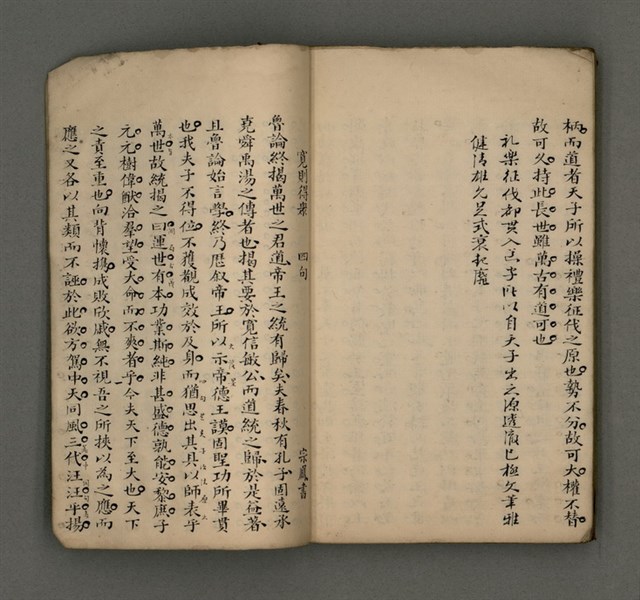 柄而道者天子所以操禮樂征伐之原也勢不分故可大權不替
故可久持此長世雖萬古有道可也
禮樂征伐都貫入天子所以自天子出之源遠瀾巳極文筆雅
健清雄允足式
寬則得衆 四句 宗鳳書
魯論終揭萬世之君道帝王之統有歸矣夫春秋有孔子固遠承
堯舜禹湯之傳者也揭其要於寬信敏公而道統之歸於是益著
且魯論始言學終乃歷叙帝王所以示帝德王謨固聖功所畢貫
也我夫子不得位不獲觀成效於及身而猶思出其具以師表乎
萬世故統揭之曰運世有本功業斯純非甚盛德孰能安黎庶子
元元樹偉猷洽羣望受大命而不爽者乎今夫天下至大也天下
之責至重也向背懷携成敗欣戚無不視吾之所挾以為之應而
應之又各以其類而不誣於此欲方駕中天同風三代汪汪乎揚